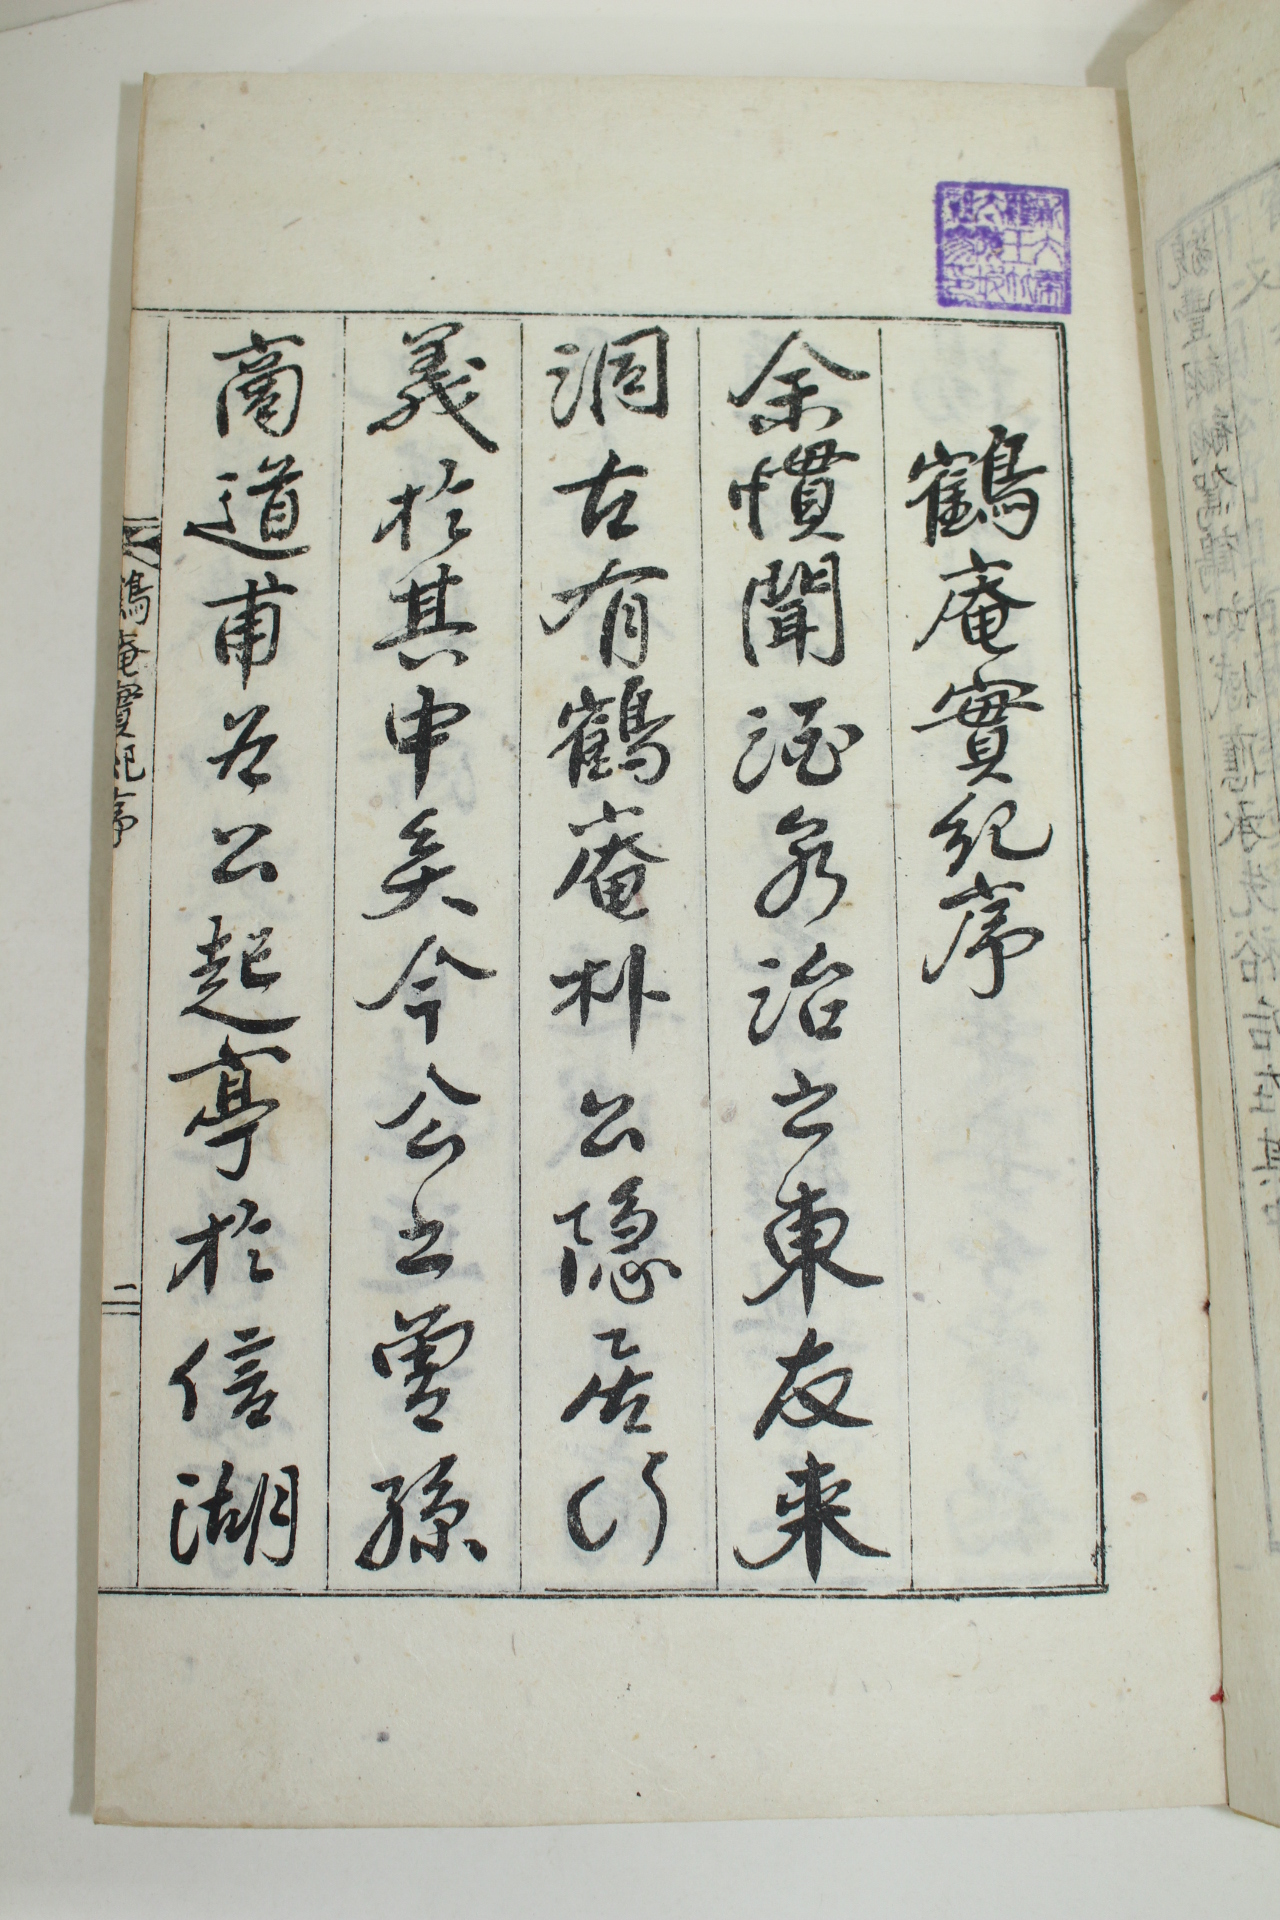 鶴庵實紀序
余慣聞酒泉治之東友来
洞古有鶴庵朴公隠居行
義於其中矣今公之曾孫
商道甫爲公起亭於信湖
鶴庵實紀序